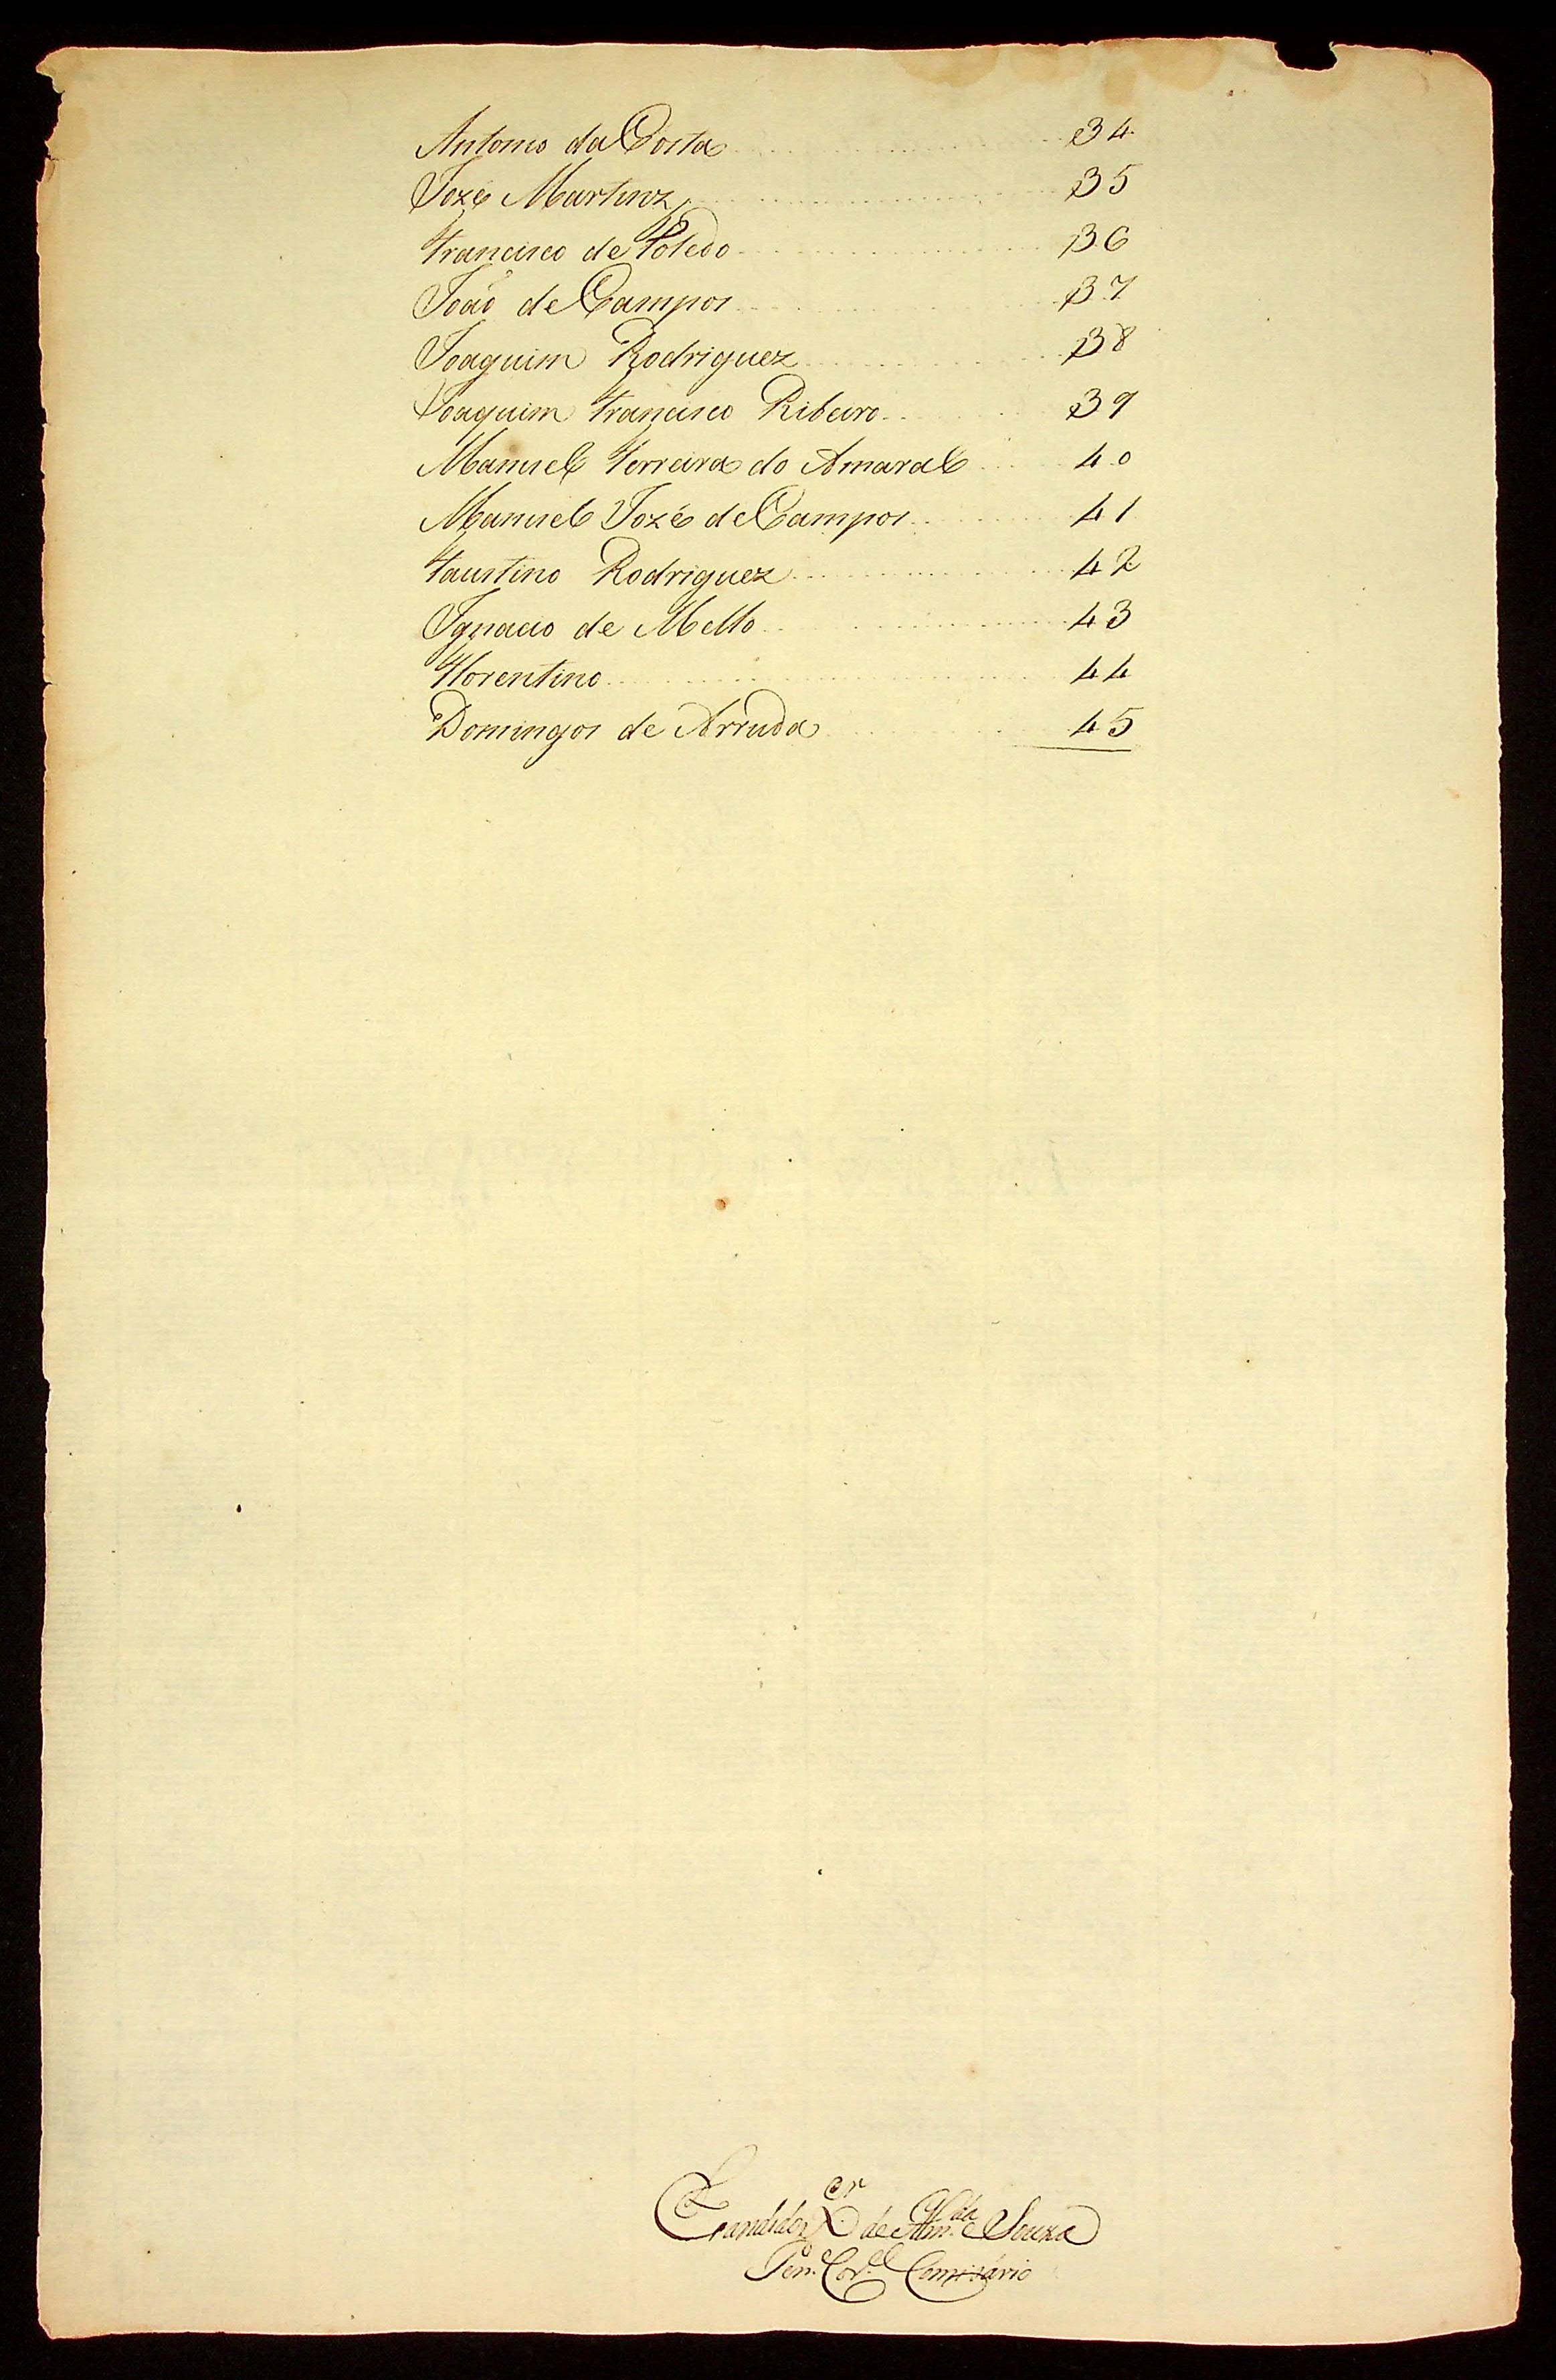 Antonio da Costa 34
Jozé Martinz 35
Francisco de Toledo 36
João de Campos 37
Joaquim Rodriguez 38
Joaquim Francisco Ribeiro 39
Manuel Ferreira do Amaral 40
Manuel Jozé de Campos 41
Faustino Rodriguez 42
Ignacio de Mello 43
Florentino 44
Domingos de Arruda 45
Candido X.er de Alm.da e Souza
Ten.e Cor.el Comisário